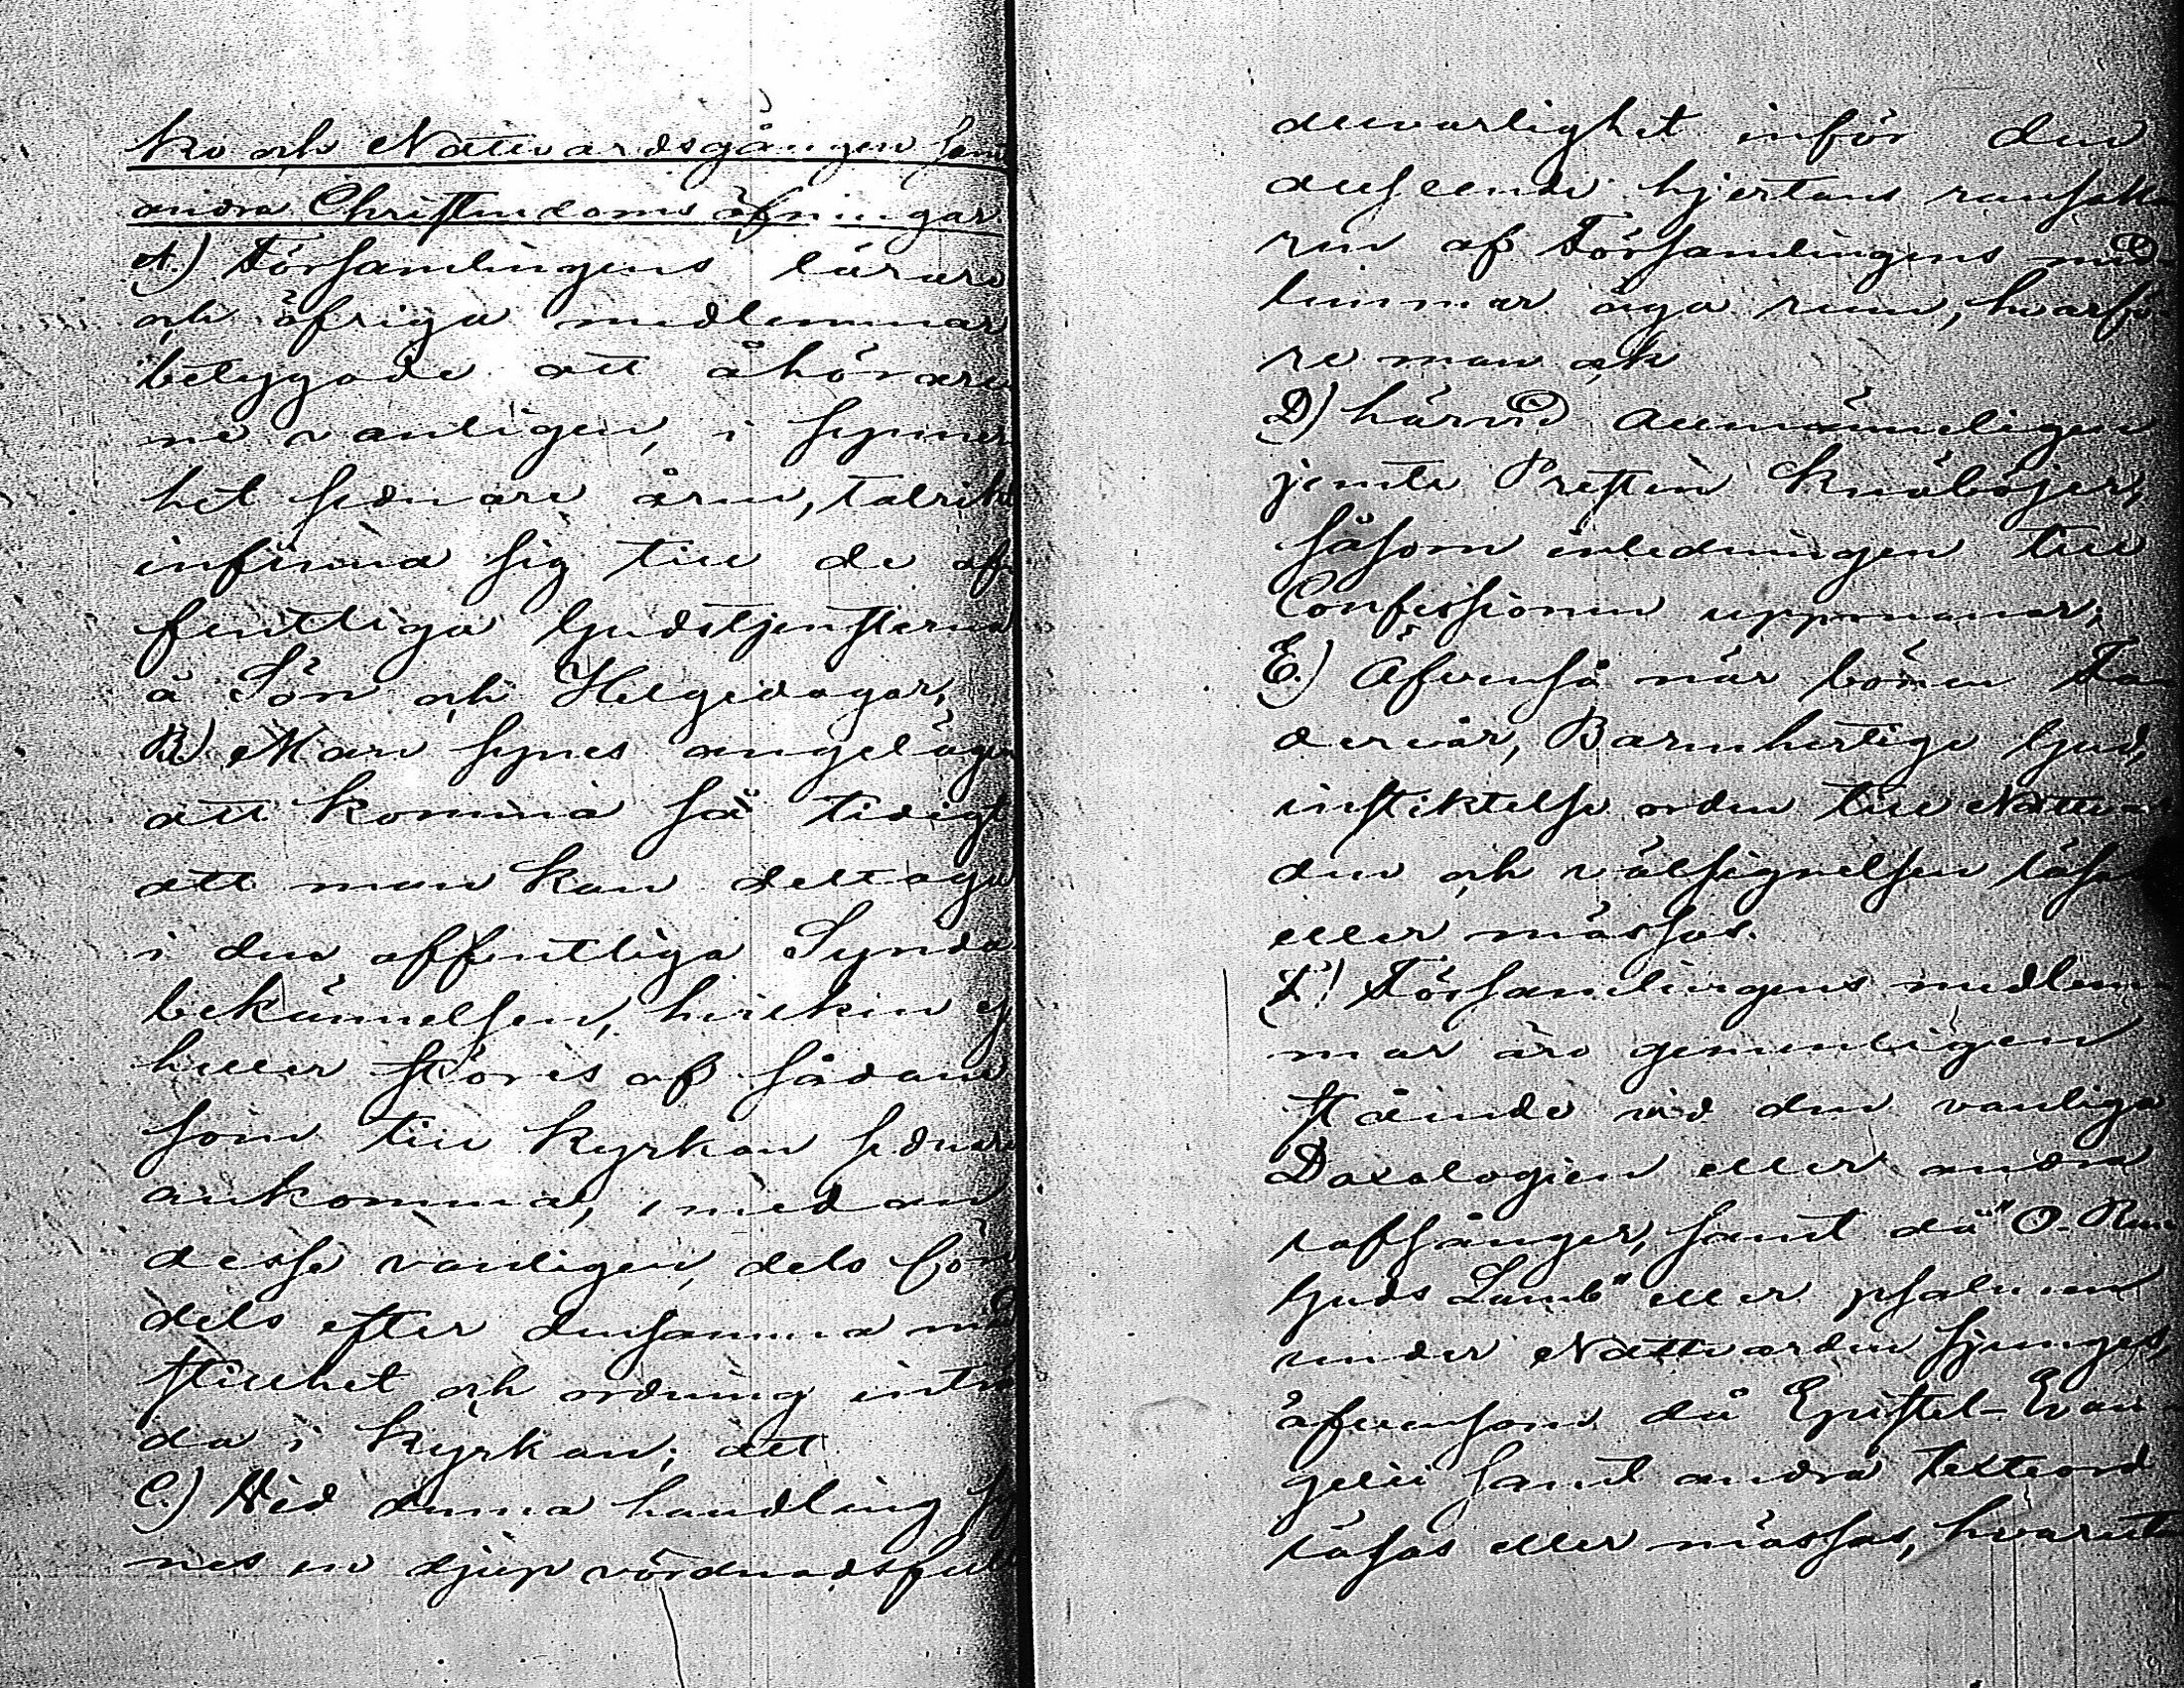 ko och Nattvardsgången sam
andra Christendoms öfningar
A.) Församlingens lärare
och öfriga medlemmar
betygade att åhörare
ne vanligen, i synner
het sednare åren, talrikt
infinna sig till de of
fentliga Gudstjensterna
å Sön och Helgedagar,
B.) Man synes angelägen
att komma så tidigt
att man kan deltaga
i den offentliga Synda
bekännelsen, hvilken ej
heller störes af sådane
som till Kyrkan sednare
ankomma, medan
desse vanligen, dels för
dels efter densamma med
stillhet och ordning inträ
da i Kyrkan; att
C.) Vid denna handling sy
nes en djup vördnadsfull
allvarlighet inför den
allseende hjertans ransaka
ren af Församlingens med
lemmar äga rum, hvarfö
re man ock
D) härvid allmänneligen
jemte Presten knäböjer,
såsom inledningen till
Confessionen uppmanar;
E.) Äfvenså när bönen Fa
der vår, Barmhertige Gud,
instiktelse orden till Nattvar
den och välsignelsen läses
eller mässas.
F.) Församlingens medlem
mar äro gemenligen
stående vid den vanliga
Doxologien eller andra
lofsånger, samt då "O. Rena
Guds Lamb" eller psalmen
under Nattvarden sjunges,
äfvensom då Epistel- Evan
gelii samt andra Texteord
läsas eller mässas, hvarut